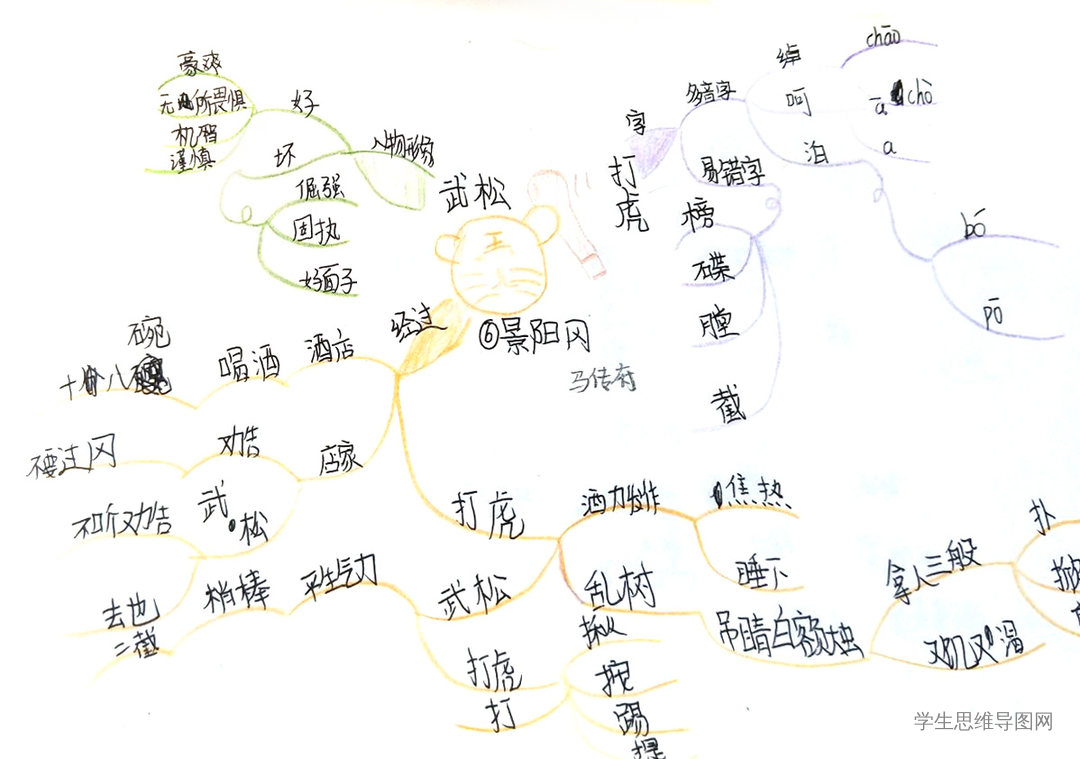 豪爽
无所畏惧
机智
谨慎
好
坏
人物形象
倔强
固执
好面子
武松
打虎
⑥景阳冈
马传奇
字
多音字
绰
chāo
chò
呵
ā
a
泊
bó
pō
易错字
榜
碟
膛
截
经过
酒店
喝酒
十八碗
店家
劝告
不要过冈
武松
不听劝告
去也
打虎
酒力发作
焦热
睡下
乱树
吊睛白额大虫
拿人三般
扑
掀
又饥又渴
武松
平生气力
梢棒
二截
打虎
打
揪
按
踢
提
学生思维导图网